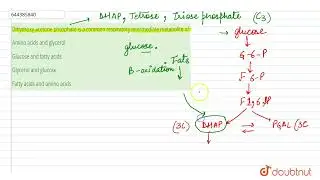 644385840
→ DHAP, Tetrose, Triose phosphate (C3)
Dihydroxyacetone phosphate is a common respiratory intermediate metabolite of
Amino acids and glycerol
Glucose and fatty acids
Glycerol and glucose
Fatty acids and amino acids
glucose.
Fats
B-oxidation
glucose
G-6-P
F-6-P
F1,6,BP
(3C)
DHAP
PGAL (3C
doubtnut